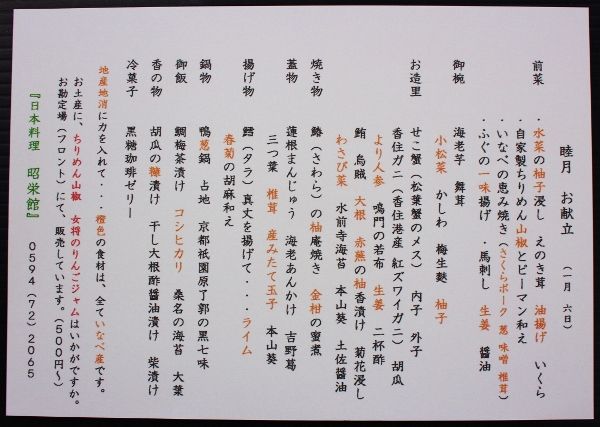 睦月　お献立　（一月　六日）
前菜　・水菜の柚子浸し　えのき茸　油揚げ　いくら
・自家製ちりめん山椒とピーマン和え
・いなべの恵み焼き（さくらポーク　葱　味噌　椎茸）
・ふぐの一味揚げ　・馬刺し　生姜　醤油
御椀　海老芋　舞茸
小松菜　かしわ　梅生麩　柚子
お造里　せこ蟹（松葉蟹のメス）　内子　外子
香住ガニ（香住港産　紅ズワイガニ）　胡瓜
より人参　鳴門の若布　生姜　二杯酢
鮪　烏賊　大根　赤蕪の柚香漬け　菊花浸し
わさび菜　水前寺海苔　本山葵　土佐醤油
焼き物　鰆（さわら）の柚庵焼き　金柑の蜜煮
蓋物　蓮根まんじゅう　海老あんかけ　吉野葛
三つ葉　椎茸　産みたて玉子　本山葵
揚げ物　鱈（タラ）真丈を揚げて・・・ライム
春菊の胡麻和え
鍋物　鴨葱鍋　占地　京都祇園原了郭の黒七味
御飯　鯛梅茶漬け　コシヒカリ　桑名の海苔　大葉
香の物　胡瓜の糠漬け　干し大根酢醤油漬け　柴漬け
冷菓子　黒糖珈琲ゼリー
地産地消に力を入れて・・・橙色の食材は、全ていなべ産です。
お土産に、ちりめん山椒　女将のりんごジャムはいかがですか。
お勘定場（フロント）にて、販売しています。（５００円～）
『日本料理　昭栄館』　０５９４（７２）２０６５